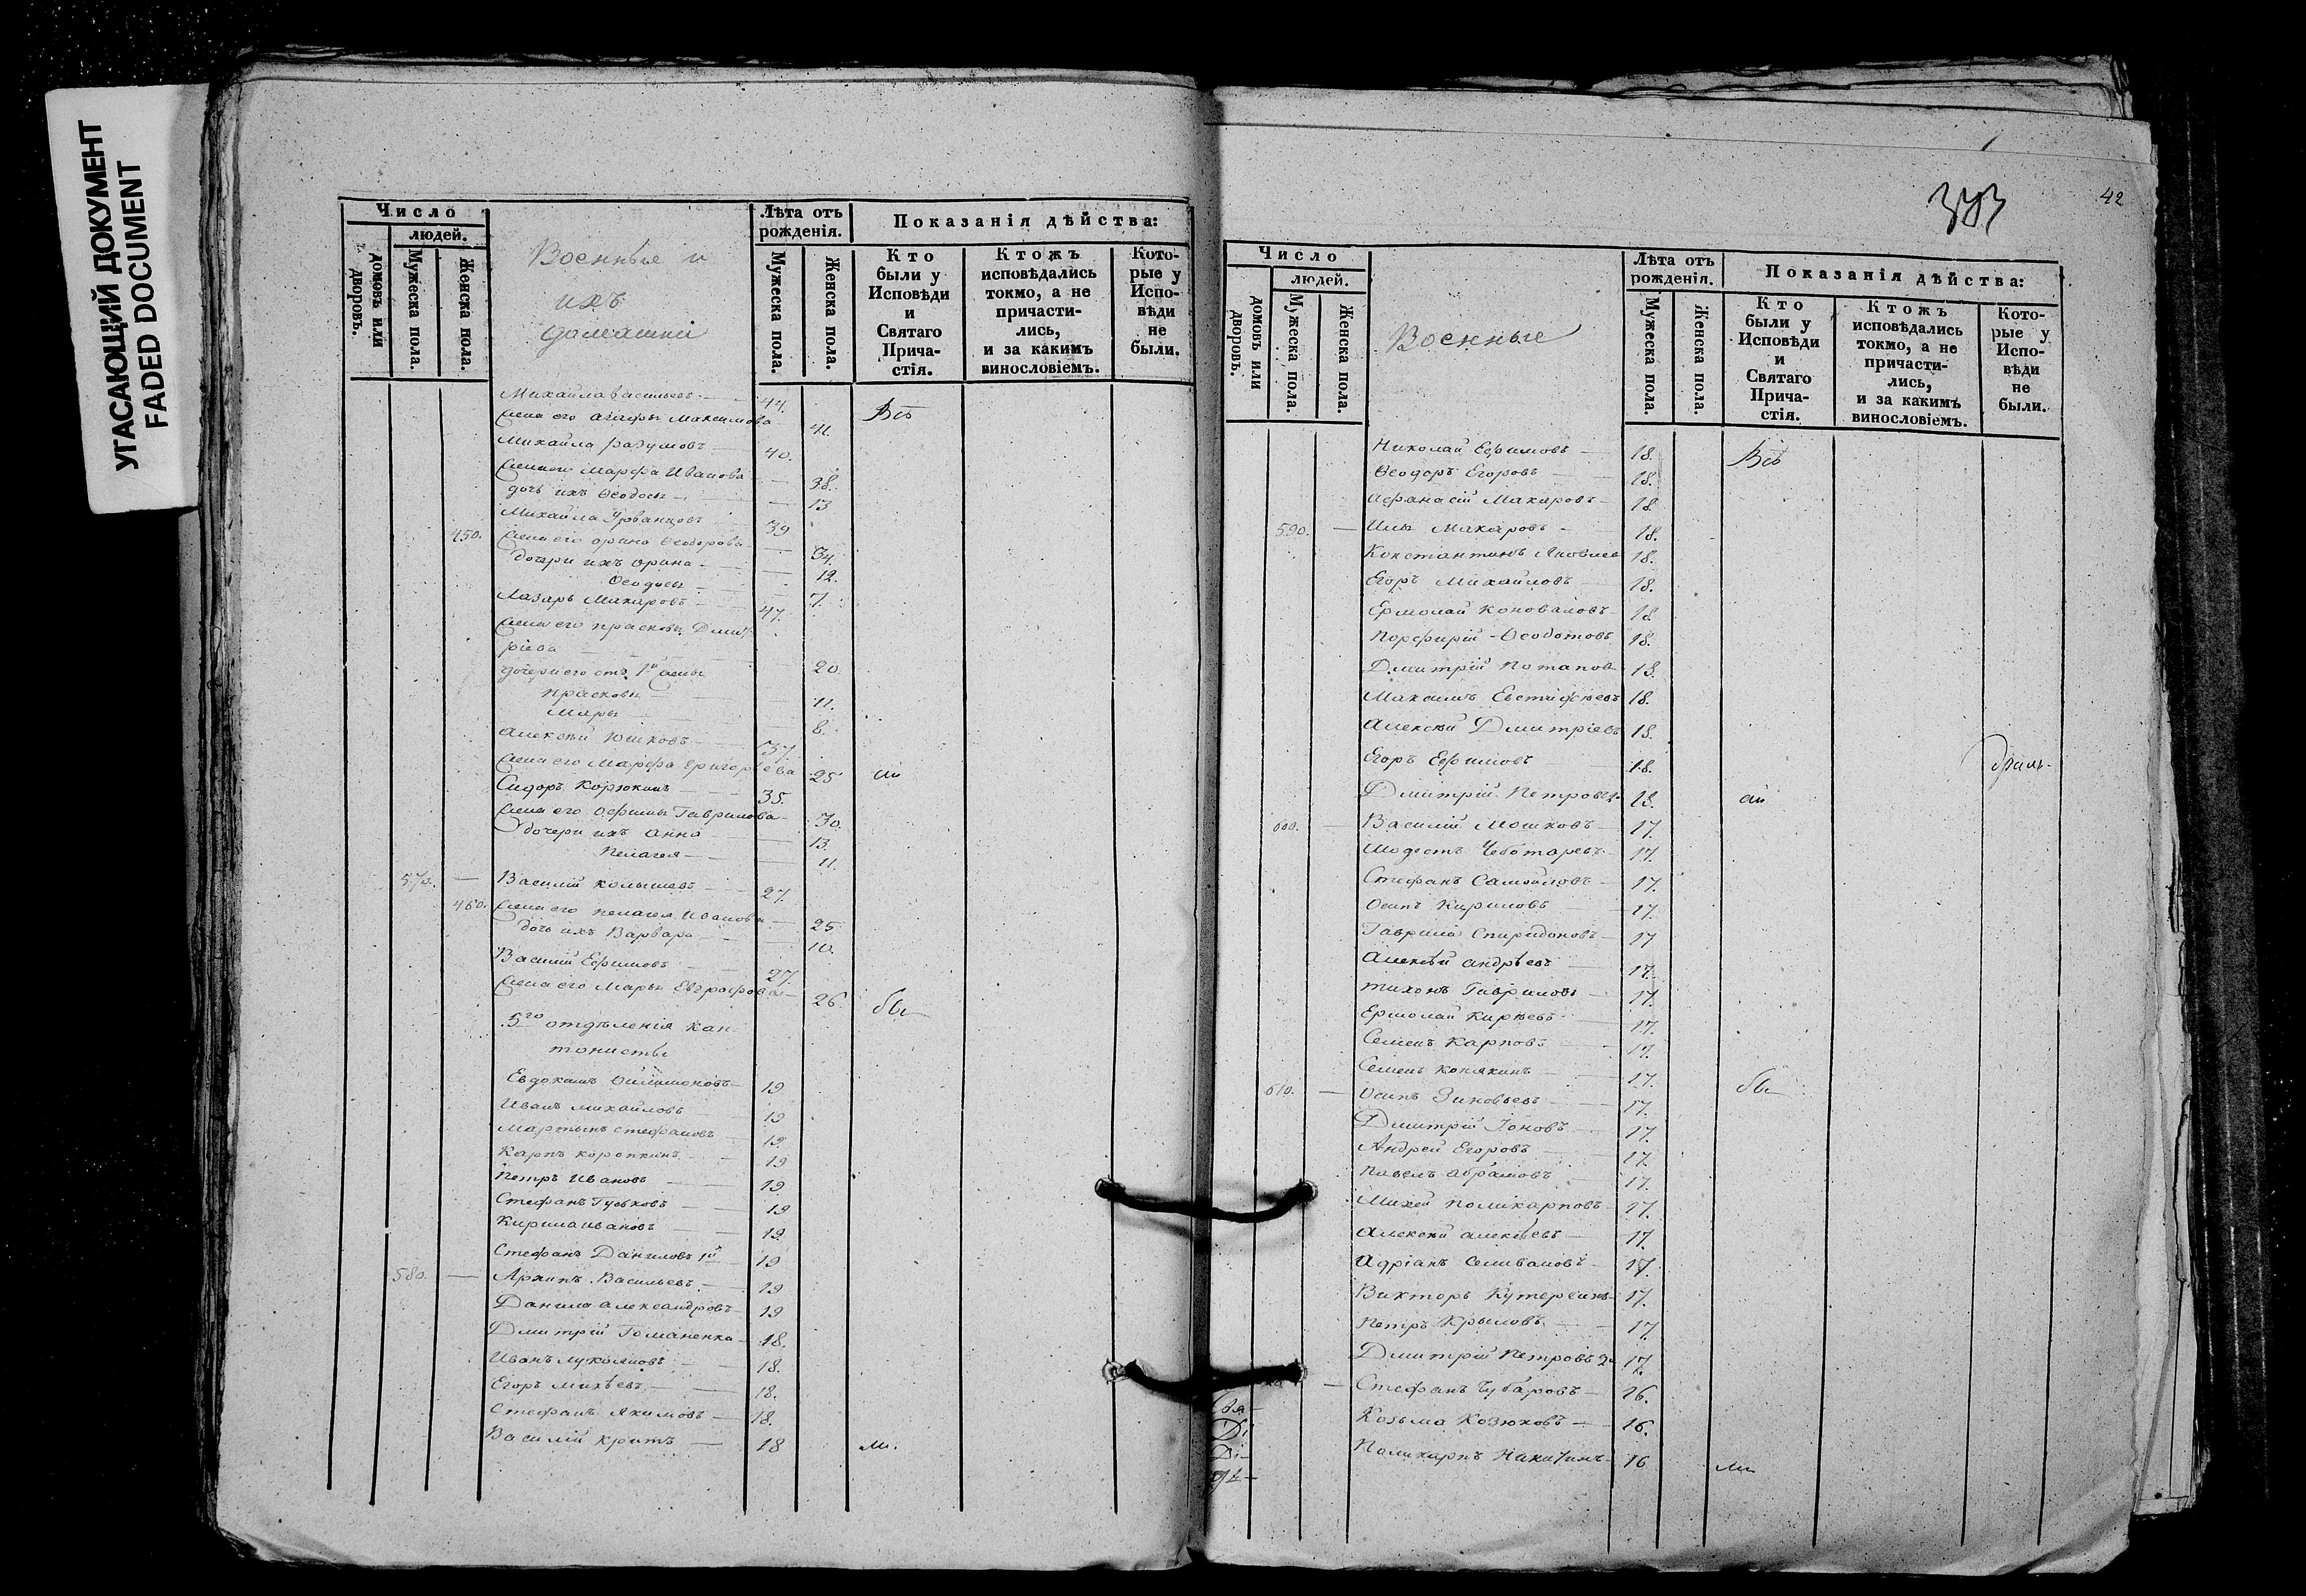 УГАСАЮЩИЙ ДОКУМЕНТ
FADED DOCUMENT
Число
людей.
домовъ или дворовъ.
Мужеска пола.
Женска пола.
Военные и
ихъ
домашніе
Лѣта отъ рожденія.
Мужеска пола.
Женска пола.
Показанія дѣйства:
Кто были у Исповѣди и Святаго Прича-стія.
Ктожъ исповѣдались токмо, а не причасти-лись, и за какимъ винословіемъ.
Кото-рые у Испо-вѣди не были.
Михайла Васильевъ 44. Всѣ
Жена его Агафья Максимова 41.
Михайла 40.
Жена его Марфа Иванова 38.
дочь ихъ Ѳеодосья 13
Михайла Урванцовъ 39
450. Жена его Орина Ѳеодорова 34.
дочери ихъ Орина 12.
Ѳеодосья 7.
Лазарь Макаровъ 47.
Жена его Прасковья Дмит
ріева 20.
дочери его отъ 1й жены
Прасковья 11.
Марья 8.
Алексѣй Юшковъ 37.
Жена его Марфа Григорьева 25
Сидоръ Корюкинъ 35.
Жена его Афимья Гаврилова 30.
дочери ихъ Анна 13.
Пелагея 11.
570. — Василій 27.
460. Жена его Пелагея Иванова 25
дочь ихъ Варвара 10.
Василій Ефимовъ 27.
Жена его Марья Евграфова 26 бы
5го отдѣленія Кан
тонисты
Евдокимъ Филимоновъ 19
Иванъ Михайловъ 19
Мартынъ Стефановъ 19
Карпъ Коропкинъ 19
Петръ Ивановъ 19
Стефанъ Гуськовъ 19
Кирила Ивановъ 19
Стефанъ Даниловъ 1й 19
580. — Архипъ Васильевъ 19
Данила Александровъ 19
Дмитрій Гоманенка 18.
Иванъ Лукояновъ 18.
Егоръ Михѣевъ 18.
Стефанъ Якимовъ 18.
Василій Критъ 18 ли.
42
Число
людей.
домовъ или дворовъ.
Мужеска пола.
Женска пола.
Военные
Лѣта отъ рожденія.
Мужеска пола.
Женска пола.
Показанія дѣйства:
Кто были у Исповѣди и Святаго Прича-стія.
Ктожъ исповѣдались токмо, а не причасти-лись, и за какимъ винословіемъ.
Кото-рые у Испо-вѣди не были.
Николай Ефимовъ 18. Всѣ
Ѳеодоръ Егоровъ 18.
Афанасій Макаровъ 18
590. — Илья Макаровъ 18.
Константинъ Яковлев 18.
Егоръ Михайловъ 18.
Ермолай Коноваловъ 18
Порфирій Ѳеодотовъ 18.
Дмитрій Потапов 18.
Максимъ Евстифѣевъ 18.
Алексѣй Дмитріевъ 18.
Егоръ Ефимовъ 18.
Дмитрій Петровъ 18.
600. — Василій Мошковъ 17.
Модестъ Чеботаревъ 17.
Стефанъ Самойловъ 17.
Осипъ Кириловъ 17.
Гаврила Спиридоновъ 17
Алексѣй Андрѣевъ 17.
Тихонъ Гавриловъ 17.
Ермолай Кирѣевъ 17.
Семенъ Карповъ 17.
Семенъ Конякинъ 17. бы
610. — Осипъ Зиновьевъ 17.
Дмитрій Іоновъ 17.
Андрей Егоровъ 17.
Павелъ Абрамовъ 17.
Михей Поликарповъ 17.
Алексѣй Алексѣевъ 17.
Адріанъ Селивановъ 17.
Викторъ Кутергинъ 17.
Петръ Крыловъ 17.
Дмитрій Петровъ 2й 17.
Стефанъ Чубаровъ 16.
Козьма Козюковъ 16.
Поликарпъ Никитинъ 16 ли